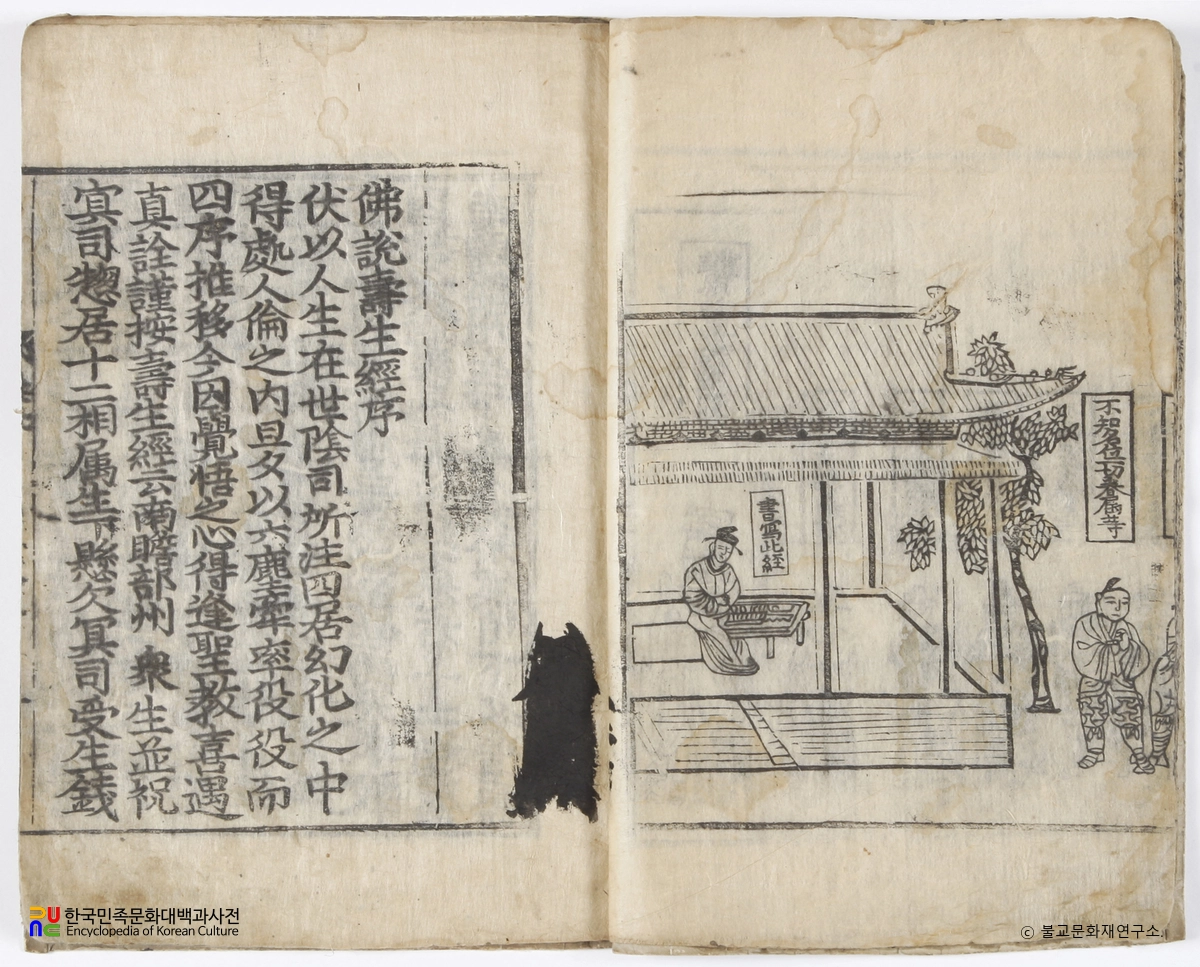 不知名位一切眷屬等
書寫此經
佛說壽生經序
伏以人生在世陰司所注四居幻化之中
得處人倫之內旦夕以六塵牽率役役而
四序推移今因覺悟之心得逢聖教喜遇
真詮謹按壽生經云南瞻部州衆生並祝
㝠司惣居十二相属生下懸欠冥司受生錢
한국민족문화대백과사전
Encyclopedia of Korean Culture
© 불교문화재연구소